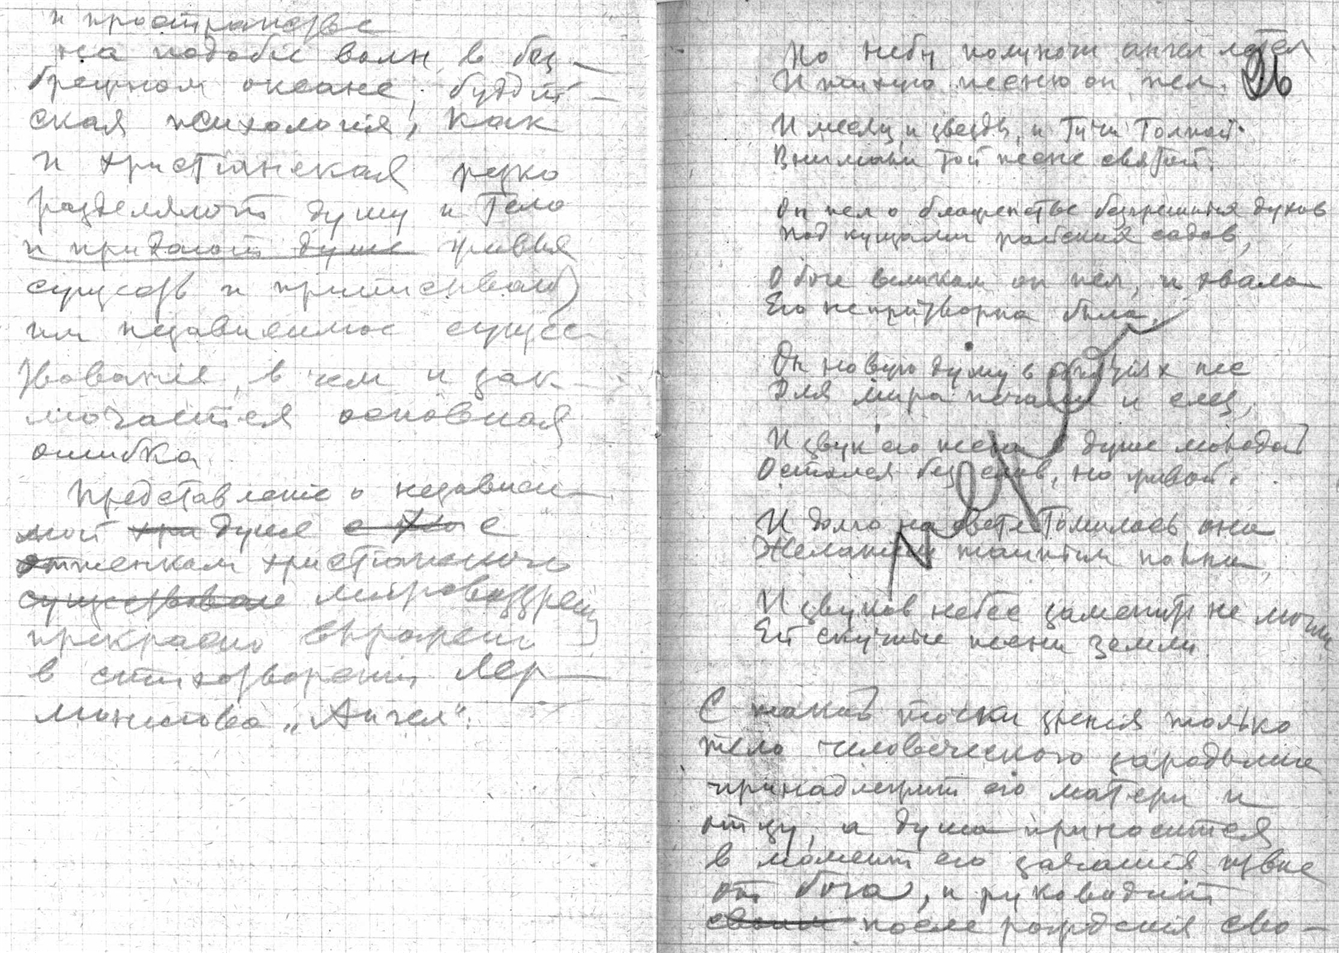 и пространстве
на подобіе волн в без-
брежном океане, буддій-
ская психологія, как
и христіанская резко
разделяют душу и тело
и придают душе
существ и приписывают
им независимое сущес-
твованія, в чем и зак-
лючается основная
ошибка
Представленіе о независи-
мой душе с
оттенком христіанского
существован міровоззрен
прекрасно выражено
в стихотвореніи Лер-
монтова „Ангел".
26
По небу полуночи ангел летел
И тихую песню он пел.
И месяц и звезды, и тучи толпой
Внимали той песне святой.
Он пел о блаженстве безгрешных духов
Под кущами райских садов,
О боге великом он пел, и хвала
Его непритворна была.
Он новую душу в объятіях нес
Для мира печали и слез,
И звук его песни в душе молодой
Остался без слов, но живой.
И долго на свете томилась она
Желанием полна,
И звуков небес заменить не могли
Ей скучные песни земли.
С такой точки зренія только
тело человеческого зародыша
принадлежит его матери и
отцу, а душа приносится
в момент его зачатія извне
от бога, и руководит
своим после рожденія сво-